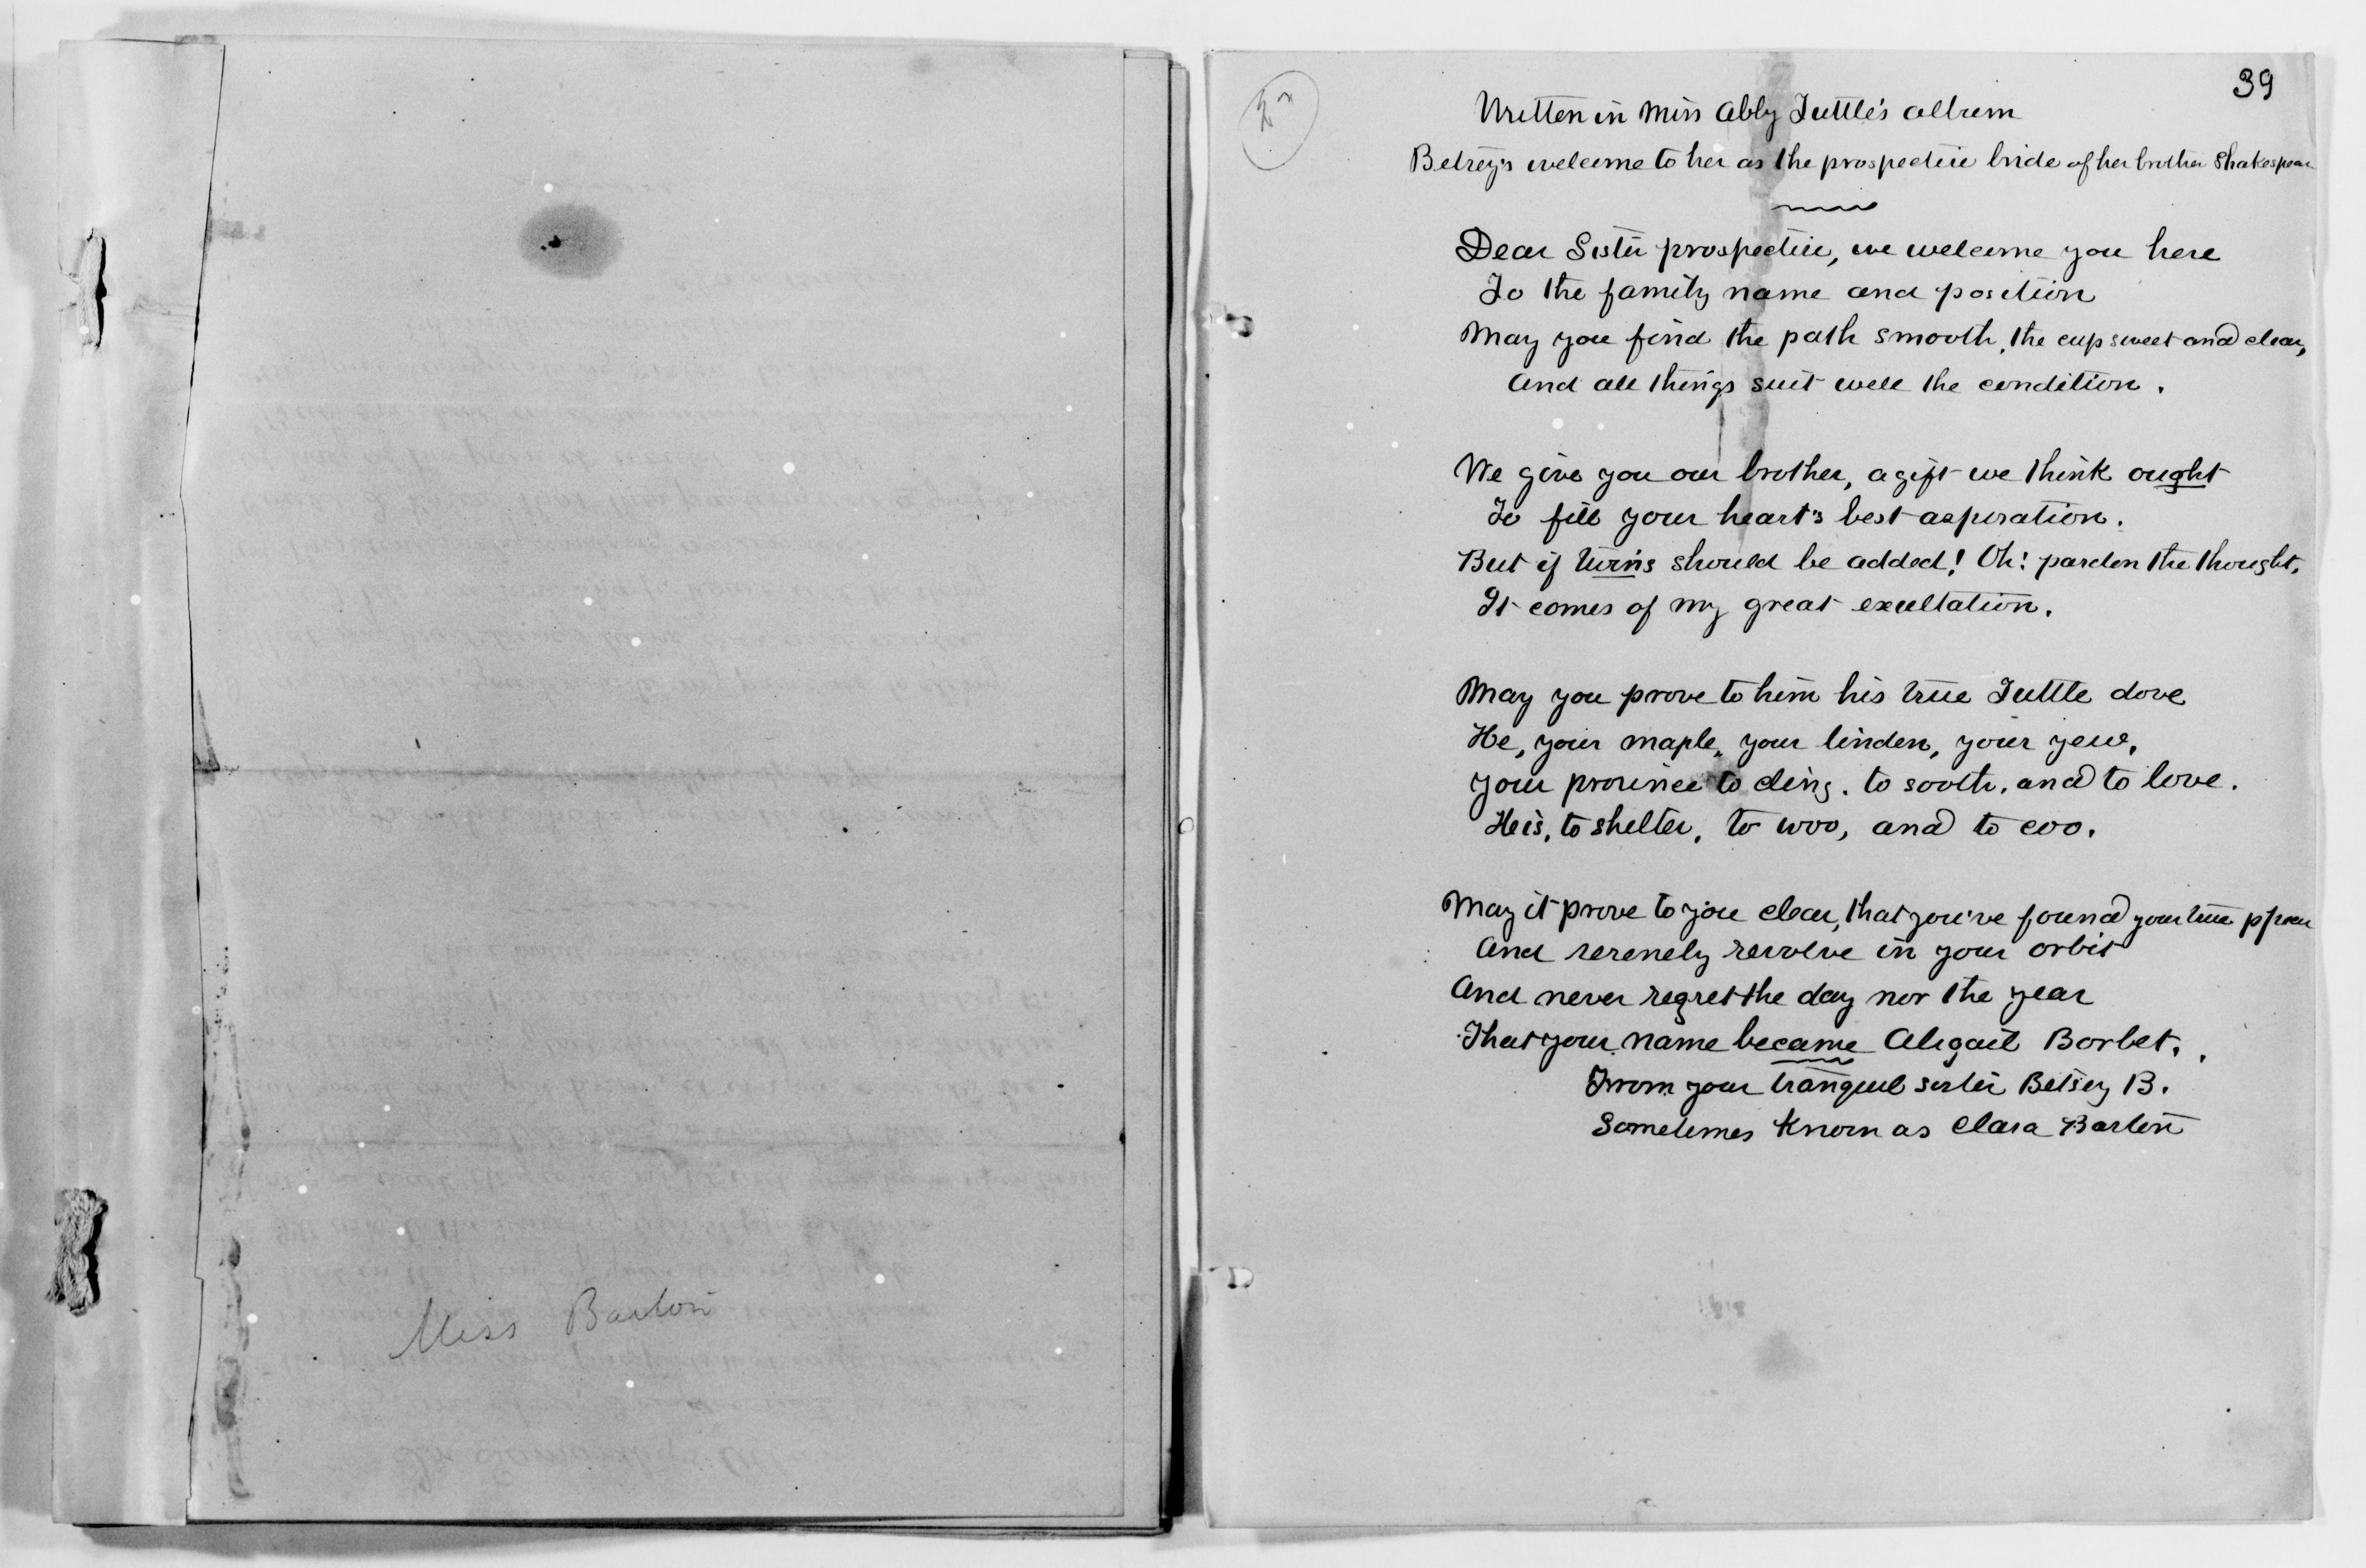 Miss Barton
39
Written in Miss Abby Tuttle's album
Betsey's welcome to her as the prospective bride of her brother Shakespear
Dear Sister prospective, we welcome you here
To the family name and position
May you find the path smooth, the cup sweet and clear,
And all things suit well the condition.
We give you our brother, a gift we think ought
To fill your heart's best aspiration.
But if twins should be added! Oh! pardon the thought,
It comes of my great exultation.
May you prove to him his true Tuttle dove
He, your maple, your linden, your yew,
Your province to cling, to sooth, and to love.
He is, to shelter, to woo, and to coo.
May it prove to you clear, that you've found your true
And serenely revolve in your orbit
And never regret the day nor the year
That your name became Abigail Borbet.
From your tranquil sister Betsey B.
Sometimes known as Clara Barton